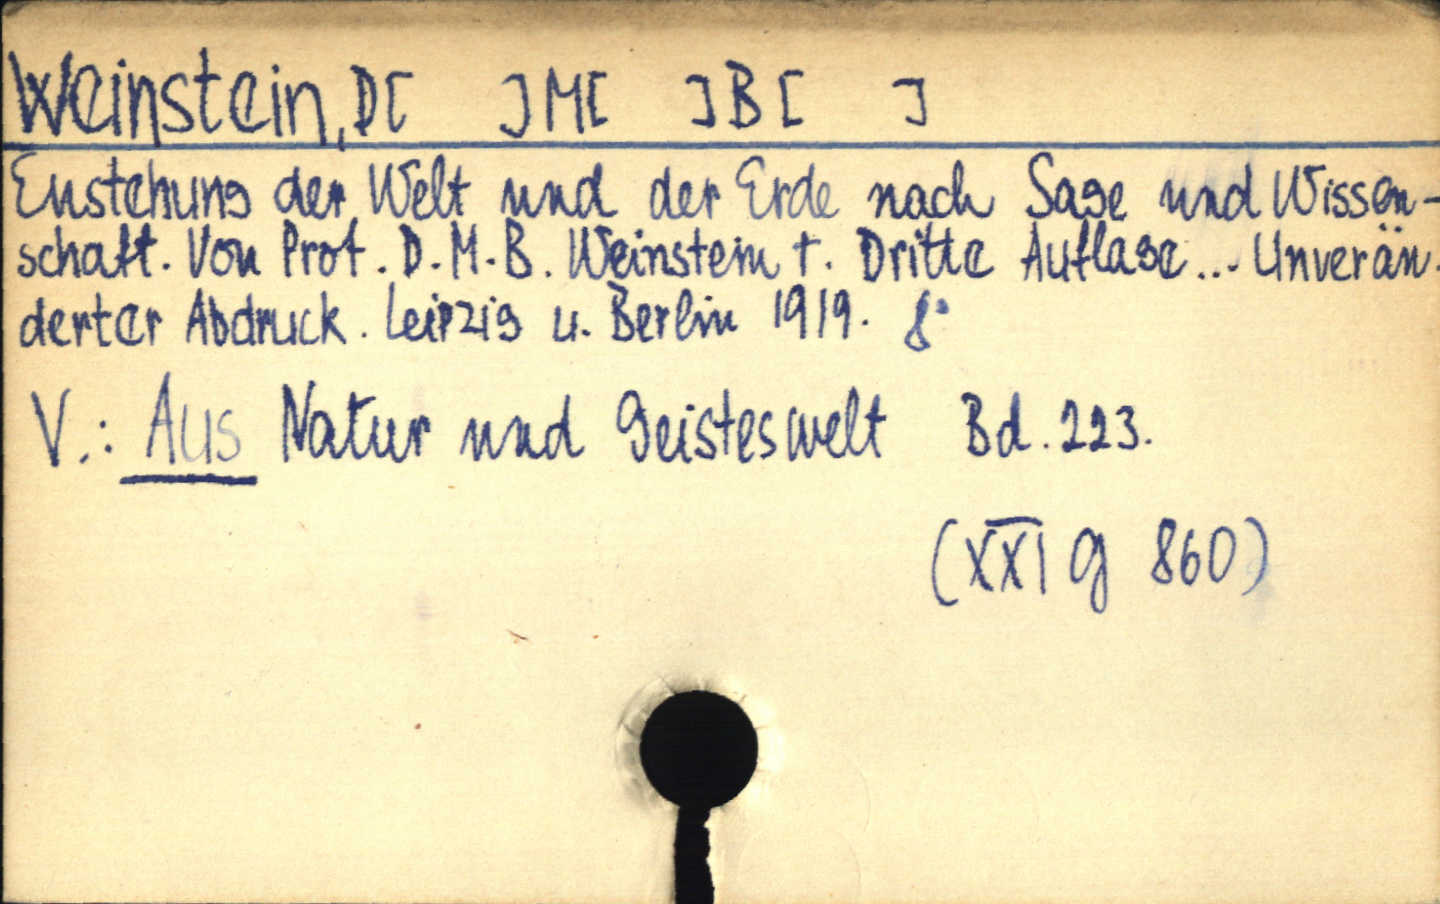 Weinstein, D[ ] M[ ] B[ ]
Enstehung der Welt und der Erde nach Sage und Wissen-
schaft. Von Prof. D. M. B. Weinstein †. Dritte Auflage... Unverän-
derter Abdruck. Leipzig u. Berlin 1919. 8°
V.: Aus Natur und Geisteswelt Bd. 223.
(XXI g 860)